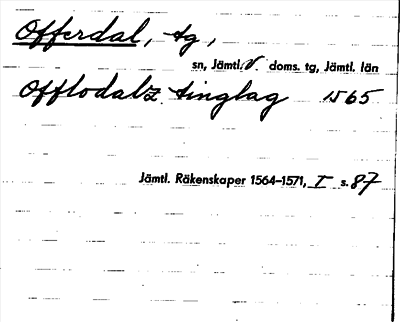 Offerdal, tg,
sn, Jämtl. V. doms. tg, Jämtl. län
Offlodalz tinglag 1565
Jämtl. Räkenskaper 1564–1571, I s. 87